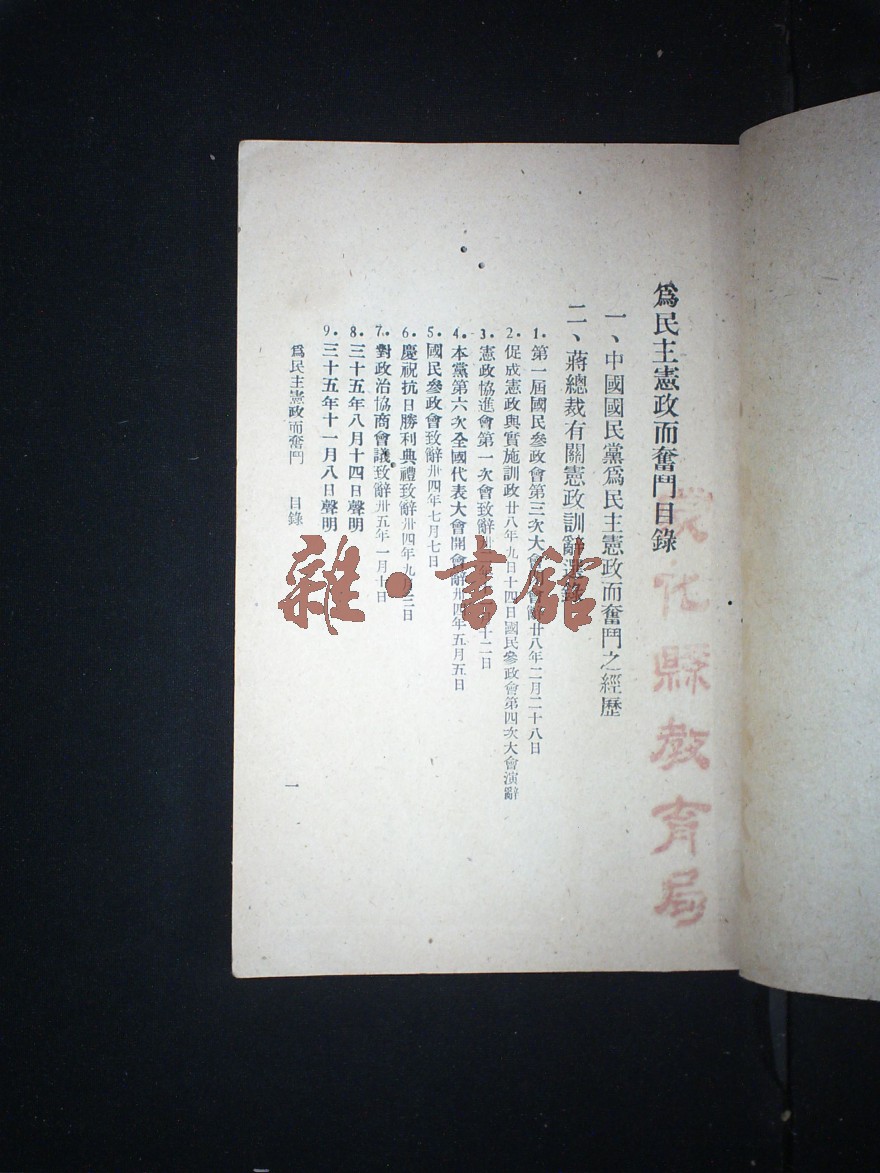 為民主憲政而奮鬥目錄
一、中國國民黨為民主憲政而奮鬥之經歷
二、蔣總裁有關憲政訓辭選錄
1. 第一屆國民參政會第三次大會 會辭廿八年二月二十八日
2. 促成憲政與實施訓政廿八年九日十四日國民參政會第四次大會演辭
3. 憲政協進會第一次會致辭 年 十二日
4. 本黨第六次全國代表大會開會辭卅四年五月五日
5. 國民參政會致辭卅四年七月七日
6. 慶祝抗日勝利典禮致辭卅四年九月三日
7. 對政治協商會議致辭卅五年一月十日
8. 三十五年八月十四日聲明
9. 三十五年十一月八日聲明
為民主憲政而奮鬥 目錄
一
化縣教育局
雜·書館